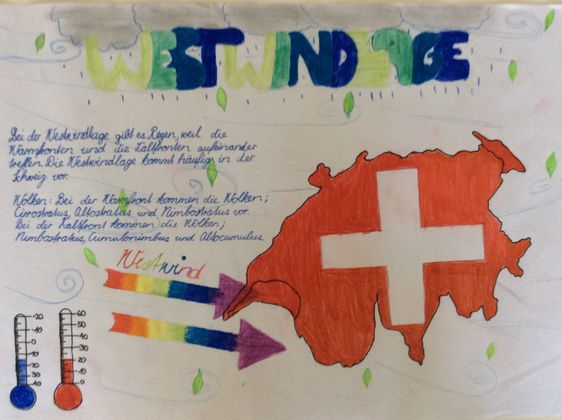 WESTWINDLAGE
Bei der Westwindlage gibt es Regen, weil die
Warmfronten und die Kaltfronten aufeinander
treffen. Die Westwindlage kommt häufig in der
Schweiz vor.
Wolken: Bei der Warmfront kommen die Wolken;
Cirrostratus, Altostratus und Nimbostratus vor.
Bei der Kaltfront kommen die Wolken;
Nimbostratus, Cumulonimbus und Altocumulus
Westwind
-20
-10
0
10
20
30
60
50
40
30
20
10
0